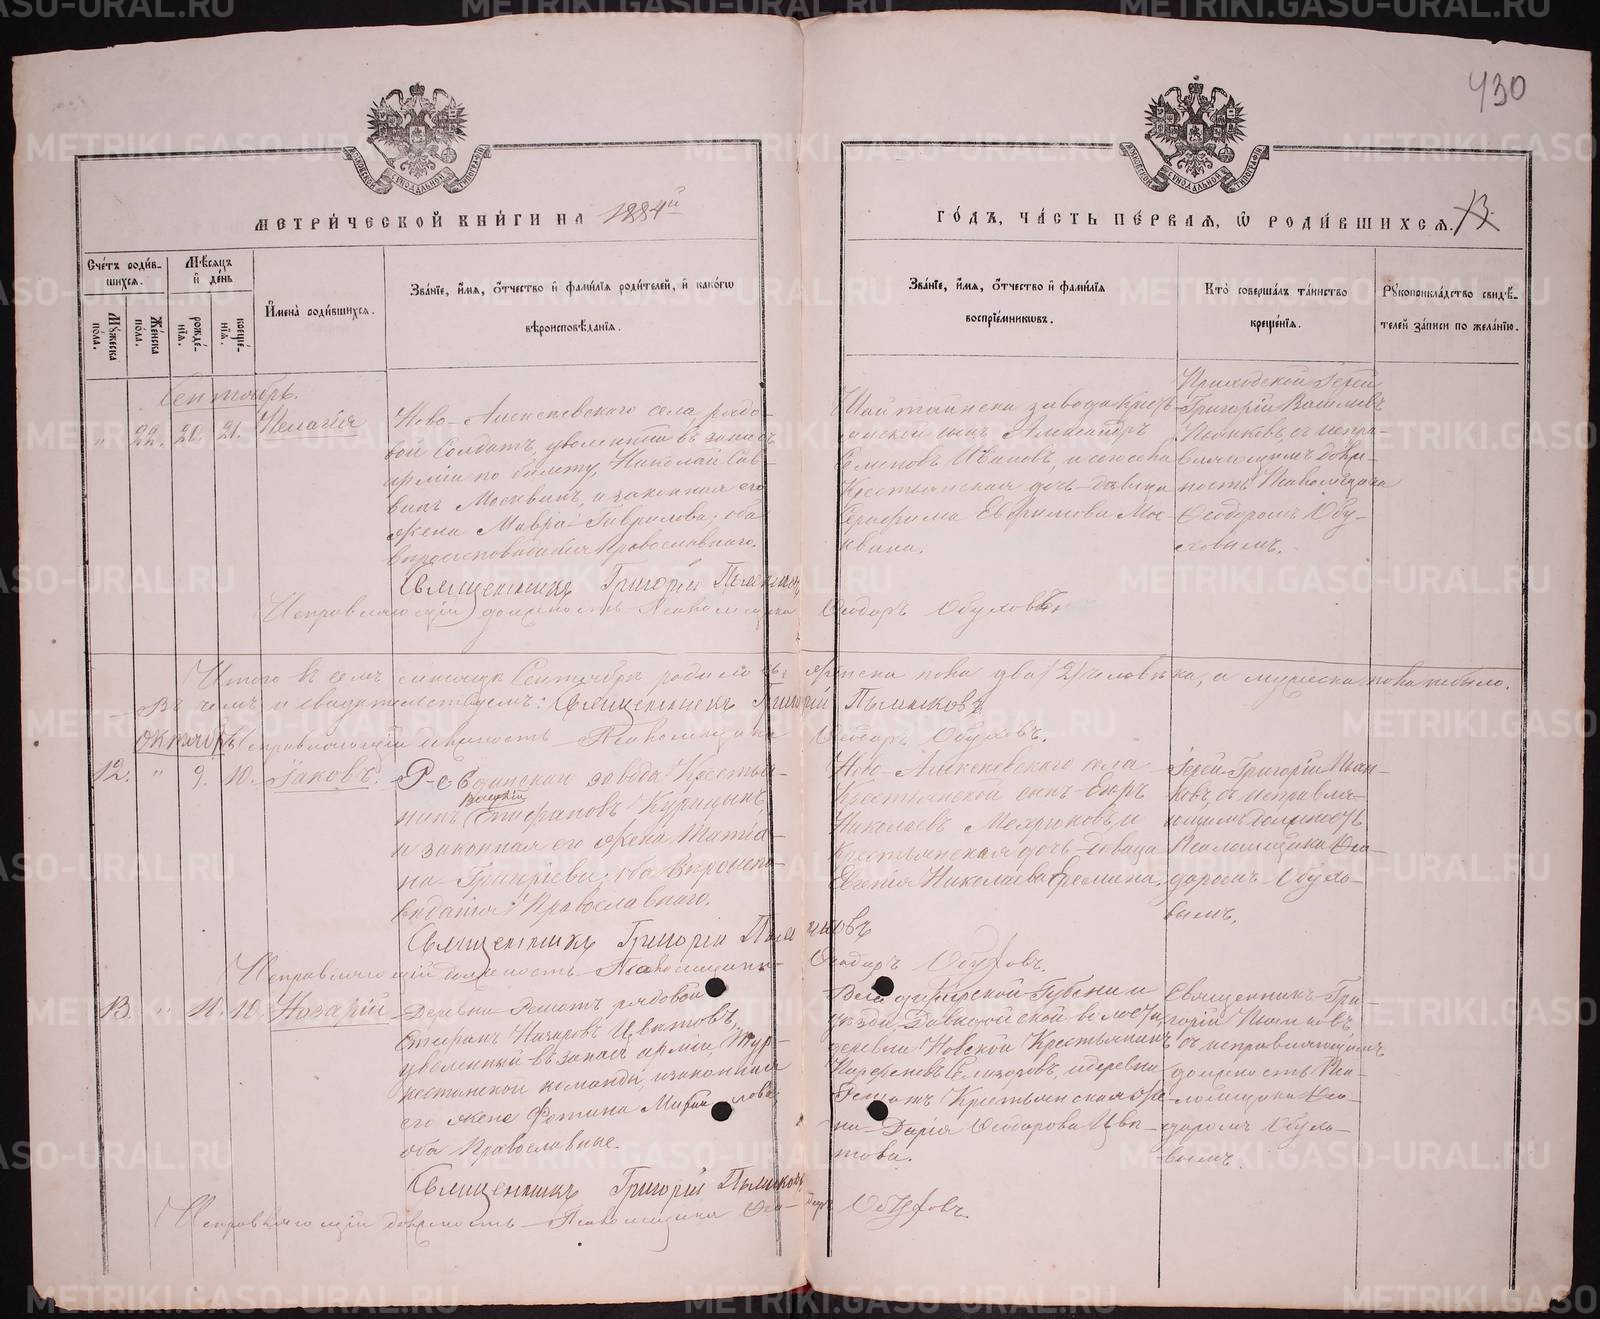 430
МЕТРИ́ЧЕСКОЙ КНИ́ГИ НА 1884й
ГО́ДЪ, ЧА́СТЬ ПЕ́РВАЯ, Ѡ РОДИ́ВШИХСЯ.
13.
Сче́тъ роди́в-
шихся.
Мѣ́сяцъ
и де́нь
Му́жеска
по́ла.
Же́нска
по́ла.
рожде́-
нїя.
креще́-
нїя.
И҆мена̀ роди́вшихся.
Зва́нїе, и҆́мя, ѻ҆́тчество и҆ фами́лїя роди́телей, и҆ како́гѡ
вѣроисповѣ́данїя.
Зва́нїе, и҆́мя, ѻ҆́тчество и҆ фами́лїя
воспрїе́мниковъ.
Кто̀ соверша́лъ та́инство
креще́нїя.
Рꙋкоприкла́дство свидѣ́-
телей за́писи по жела́нїю.
Сентябрь.
" 22. 20. 21. Пелагія
Ново-Алексеевского села рядо-
вой Солдатъ, уволенный въ запасъ
арміи по билету, Николай Сав-
винъ Москвинъ, и законная его
жена Мавра Гаврилова; оба
вѣроисповѣданія Православнаго.
Шайтанска завода Кресть-
янской сынъ Александръ
Семеновъ Ивановъ, и
Крестьянская дочь-дѣвица
Серафима Евфимова Мос-
квина.
Приходской Іерей
Григорій Васильевъ
Пьянковъ, съ испра-
вляющимъ долж-
ность Псаломщика
Ѳеодоромъ Обу-
ховымъ.
Священникъ Григорій Пьянковъ
Исправляющій должность Псаломщика Ѳеодоръ Обуховъ.
Итого въ семъ мѣсяцѣ Сентябрѣ родилось женска пола два /2/ человѣка, а мужеска пола не было.
Въ чемъ и свидѣтельствуемъ: Священникъ Григорій Пьянковъ
Исправляющій должность Псаломщика Ѳеодоръ Обуховъ.
Октябрь
12. " 9. 10. Іаковъ.
Р-свдинскаго завода Крестья-
нинъ Епифановъ Курицынъ,
и законная его жена Татіа-
на Григорьева; оба Вѣроиспо-
вѣданія Православнаго.
Ново-Алексеевского села
Крестьянской сынъ
Николаевъ и
Крестьянская дочь дѣвица
Евгенія Николаева Еремина.
Іерей Григорій Пьян-
ковъ, съ исправля-
ющимъ должность
Псаломщика Ѳео-
доромъ Обухо-
вымъ.
Священникъ Григорій Пьянковъ
Исправляющій должность Псаломщика Ѳеодоръ Обуховъ.
13. " 10. 10. Назарій
Деревни Решотъ рядовой
Стефанъ Назаровъ Цвѣтовъ,
уволенный въ запасъ арміи, Тур-
кестанской команды, и законная
его жена Фотина
оба Православные.
Губерніи
уѣзда, волости,
деревни Крестьянинъ
Парфеновъ Елизаровъ, и деревни
Решотъ Крестьянская же-
на Дарія Ѳеодорова Цвѣ-
това.
Священникъ Гри-
горій Пьянковъ,
съ исправляющимъ
должность Пса-
ломщика Ѳео-
доромъ Обухо-
вымъ.
Священникъ Григорій Пьянковъ
Исправляющій должность Псаломщика Ѳеодоръ Обуховъ.
METRIKI.GASO-URAL.RU